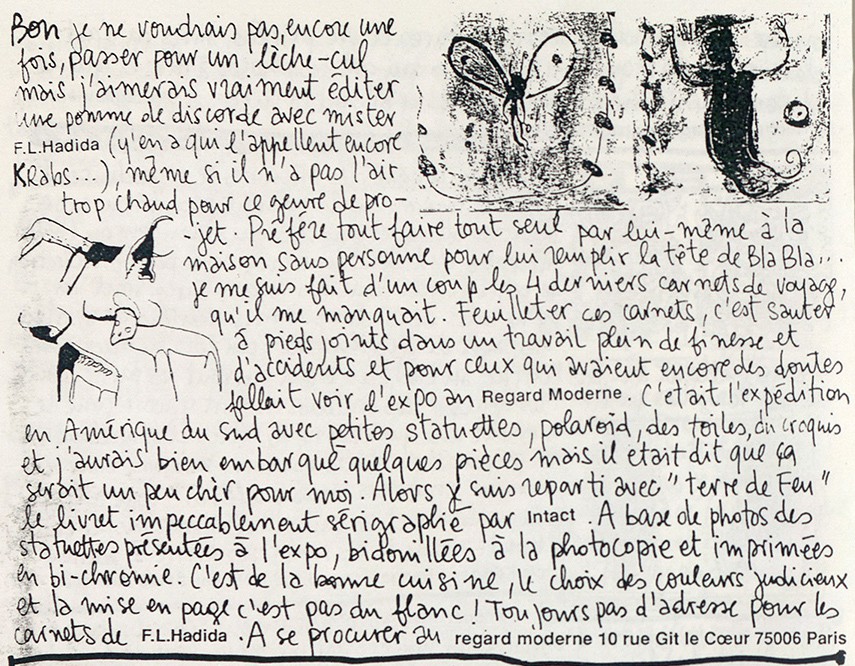 Bon je ne voudrais pas, encore une
fois, passer pour un lèche-cul
mais j'aimerais vraiment éditer
une pomme de discorde avec mister
F.L.Hadida (y'en a qui l'appellent encore
KRabs...), même si il n'a pas l'air
trop chaud pour ce genre de pro-
-jet. Préfére tout faire tout seul par lui-même à la
maison sans personne pour lui remplir la tête de Bla Bla...
je me suis fait d'un coup les 4 derniers carnets de voyage,
qu'il me manquait. Feuilleter ces carnets, c'est sauter
à pieds joints dans un travail plein de finesse et
d'accidents et pour ceux qui avaient encore des doutes
fallait voir l'expo au Regard Moderne. C'etait l'expédition
en Amérique du Sud avec petites statuettes, polaroïd, des toiles, du croquis
et j'aurais bien embarqué quelques pièces mais il etait dit que ça
serait un peu chèr pour moi. Alors j'suis reparti avec "terre de Feu"
le livret impeccablement sérigraphié par Intact. A base de photos des
statuettes présentées à l'expo, bidouillées à la photocopie et imprimées
en bi-chromie. C'est de la bonne cuisine, le choix des couleurs judicieux
et la mise en page c'est pas du flanc! Toujours pas d'adresse pour les
carnets de F.L.Hadida. A se procurer au regard moderne 10 rue Git le Cœur 75006 Paris